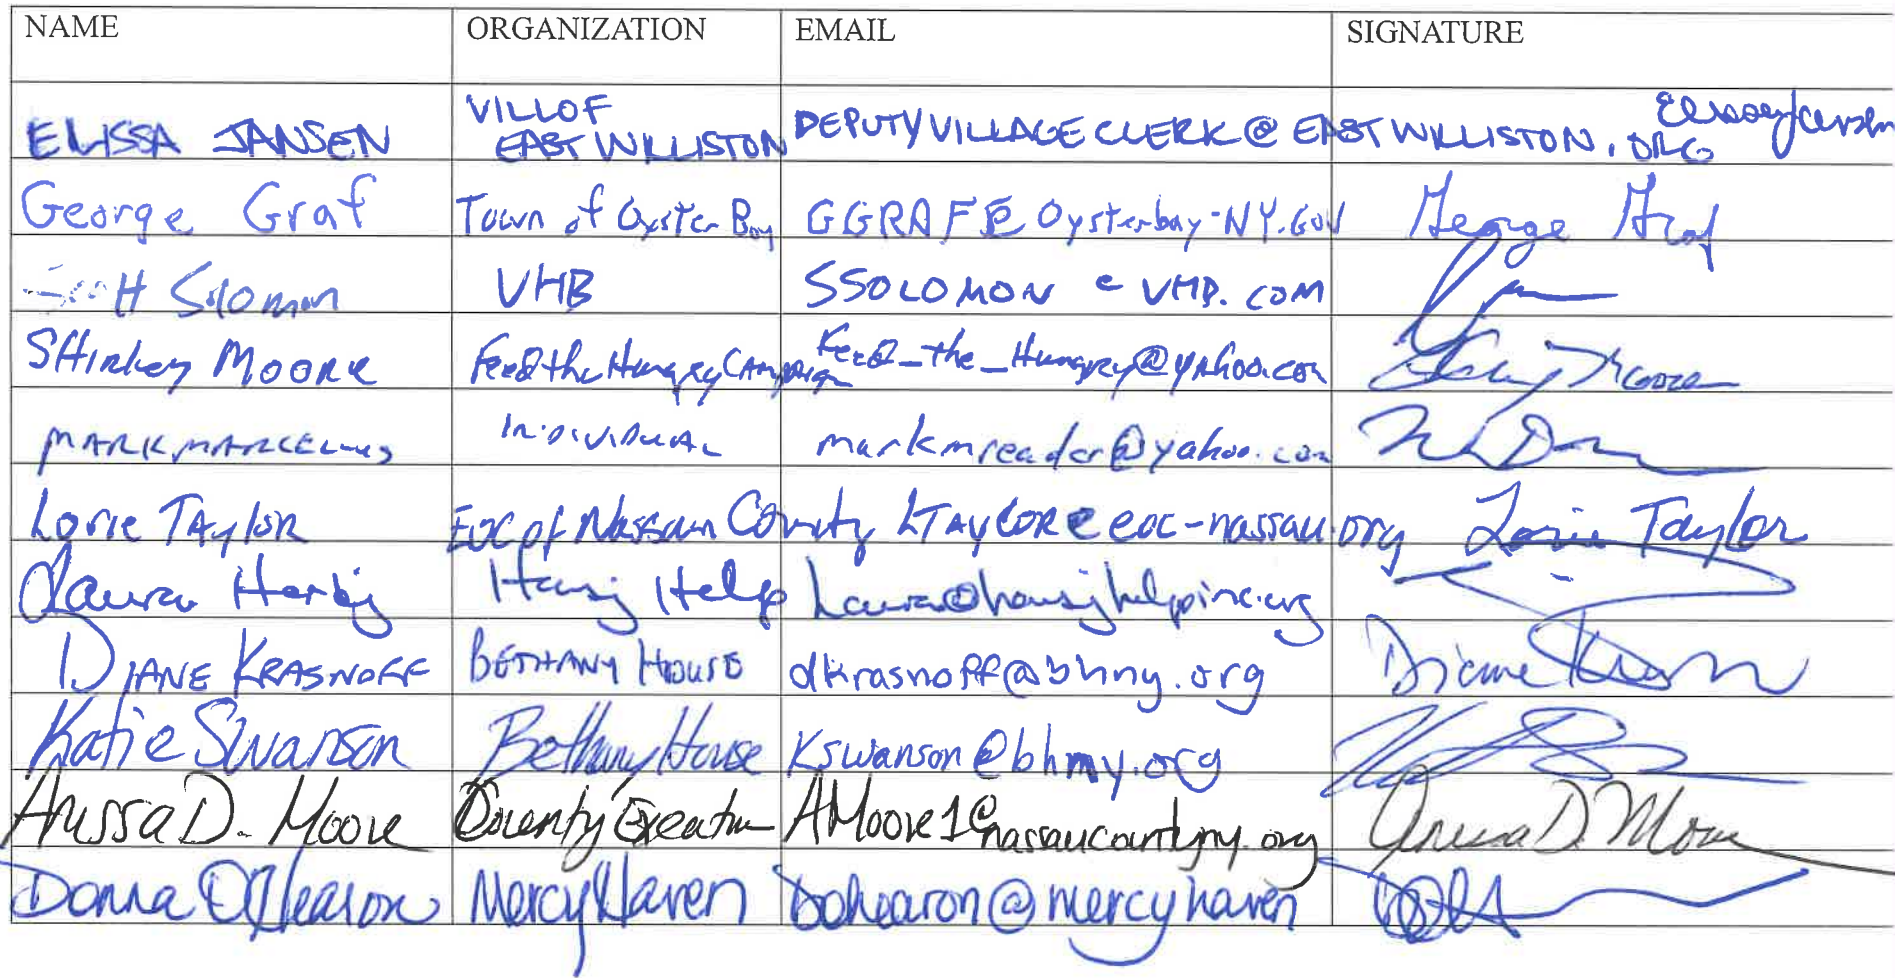 NAME ORGANIZATION EMAIL SIGNATURE
ELISSA JANSEN VILL OF EAST WILLISTON DEPUTYVILLAGECLERK@EASTWILLISTON.ORG
George Graf Town of Oyster Bay GGRAF@Oysterbay-NY.Gov George Graf
Scott Solomon VHB SSOLOMON@VHB.COM
SHirley MOORE Feed the Hungry CAmpaign Feed_the_Hungry@yahoo.com
MARK MARCELLUS INDIVIDUAL markmreader@yahoo.com
Lorie TAylor EOC of Nassau County LTAYLOR@eoc-nassau.org Lorie Taylor
Laura Help Laura@
DIANE KRASNOFF BETHANY HOUSE dkrasnoff@bhny.org Diane
Katie Swanson Bethany House Kswanson@bhny.org
D. Moore County Executive AMoore1@nassaucountyny.org D. Moore
Donna Mercy Haven @mercyhaven